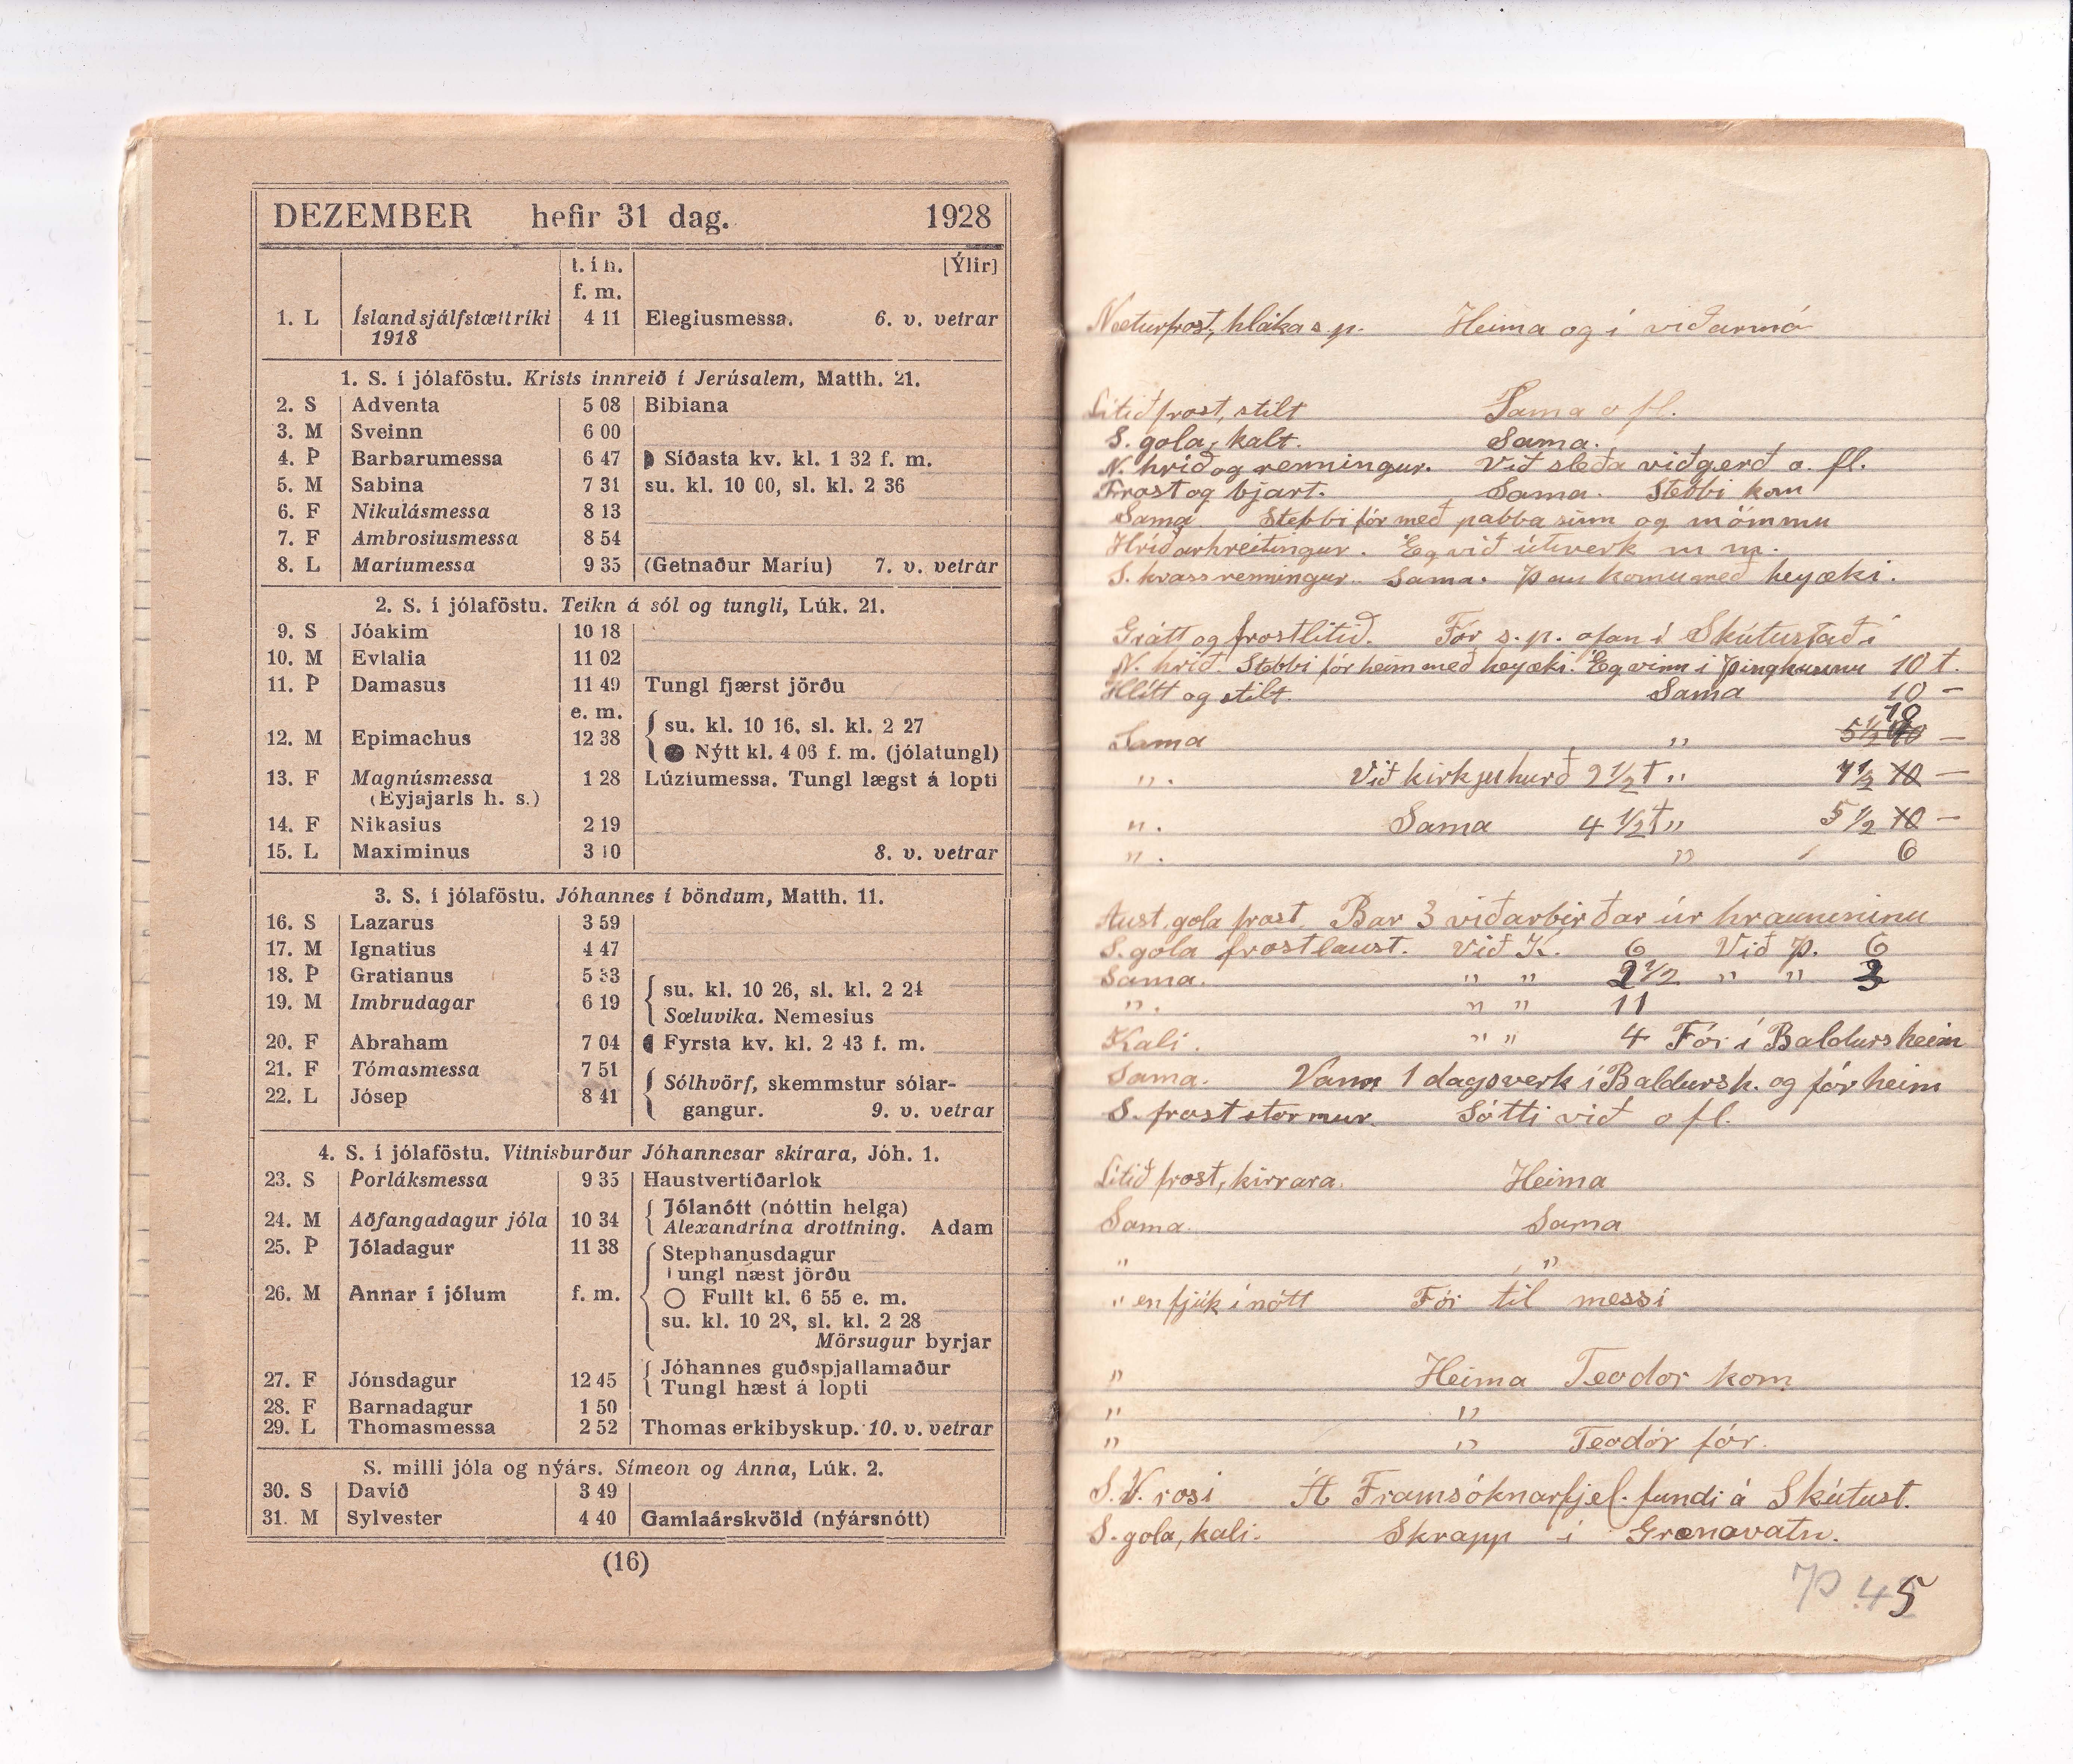 DEZEMBER hefir 31 dag. 1928
t. í h. [Ýlir]
f. m.
1. L Ísland sjálfstætt ríki 4 11 Elegiusmessa. 6. v. vetrar
1918
1. S. í jólaföstu. Krists innreið í Jerúsalem, Matth. 21.
2. S Adventa 5 08 Bibiana
3. M Sveinn 6 00
4. Þ Barbarumessa 6 47 Síðasta kv. kl. 1 32 f. m.
5. M Sabina 7 31 su. kl. 10 00, sl. kl. 2 36
6. F Nikulásmessa 8 13
7. F Ambrosiusmessa 8 54
8. L Maríumessa 9 35 (Getnaður Maríu) 7. v. vetrar
2. S. í jólaföstu. Teikn á sól og tungli, Lúk. 21.
9. S Jóakim 10 18
10. M Evlalia 11 02
11. Þ Damasus 11 49 Tungl fjærst jörðu
e. m. su. kl. 10 16, sl. kl. 2 27
12. M Epimachus 12 38 Nýtt kl. 4 06 f. m. (jólatungl)
13. F Magnúsmessa 1 28 Lúzíumessa. Tungl lægst á lopti
(Eyjajarls h. s.)
14. F Nikasius 2 19
15. L Maximinus 3 10 8. v. vetrar
3. S. í jólaföstu. Jóhannes í böndum, Matth. 11.
16. S Lazarus 3 59
17. M Ignatius 4 47
18. Þ Gratianus 5 33 su. kl. 10 26, sl. kl. 2 24
19. M Imbrudagar 6 19 Sæluvika. Nemesius
20. F Abraham 7 04 Fyrsta kv. kl. 2 43 f. m.
21. F Tómasmessa 7 51 Sólhvörf, skemmstur sólar-
22. L Jósep 8 41 gangur. 9. v. vetrar
4. S. í jólaföstu. Vitnisburður Jóhannesar skírara, Jóh. 1.
23. S Þorláksmessa 9 35 Haustvertíðarlok
Jólanótt (nóttin helga)
24. M Aðfangadagur jóla 10 34 Alexandrína drottning. Adam
25. Þ Jóladagur 11 38 Stephanusdagur
Tungl næst jörðu
26. M Annar í jólum f. m. Fullt kl. 6 55 e. m.
su. kl. 10 28, sl. kl. 2 28
Mörsugur byrjar
Jóhannes guðspjallamaður
27. F Jónsdagur 12 45 Tungl hæst á lopti
28. F Barnadagur 1 50
29. L Thomasmessa 2 52 Thomas erkibyskup. 10. v. vetrar
S. milli jóla og nýárs. Símeon og Anna, Lúk. 2.
30. S Davíð 3 49
31. M Sylvester 4 40 Gamlaárskvöld (nýársnótt)
(16)
Næturfrost, hláka s. p. Heima og í viðarmó
Lítið frost, stilt Sama o fl.
S. gola, kalt. Sama.
N. hríð og renningur. Við sleða viðgerð o. fl.
Frost og bjart. Sama. Stebbi kom
Sama Stebbi fór með pabba sinn og mömmu
Hríðarhreitingur. Eg við útiverk m m.
S. hvass renningur. Sama. Þau komu með heyæki.
Grátt og frostlítið. Fór s. p. ofan í Skútustaði
N. hríð. Stebbi fór heim með heyæki. Eg vinn í þinghúsinu 10 t.
Hlítt og stilt. Sama 10 —
Sama " 10 —
" . Við kirkjuhurð 2 1/2 t " 7 1/2 10 —
" . Sama 4 1/2 t " 5 1/2 10 —
" . " 6
Aust. gola frost. Bar 3 viðarbirðar úr hrauninu
S. gola frostlaust. Við K. 6 Við Þ. 6
Sama. " " 2 1/2 " " 3
" . " " 11
Kali. " " 4 Fór í Baldursheim
Sama. Vann 1 dagsverk í Baldursh. og fór heim
S. frost stormur. Sótti við o fl.
Lítið frost, kirrara. Heima
Sama. Sama
" "
" en fjúk í nótt Fór til messi
" Heima Teodor kom
" "
" " Teodór fór.
S. V. rosi Át Framsóknarfjel. fundi á Skútust.
S. gola, kali. Skrapp í Grænavatn.
45